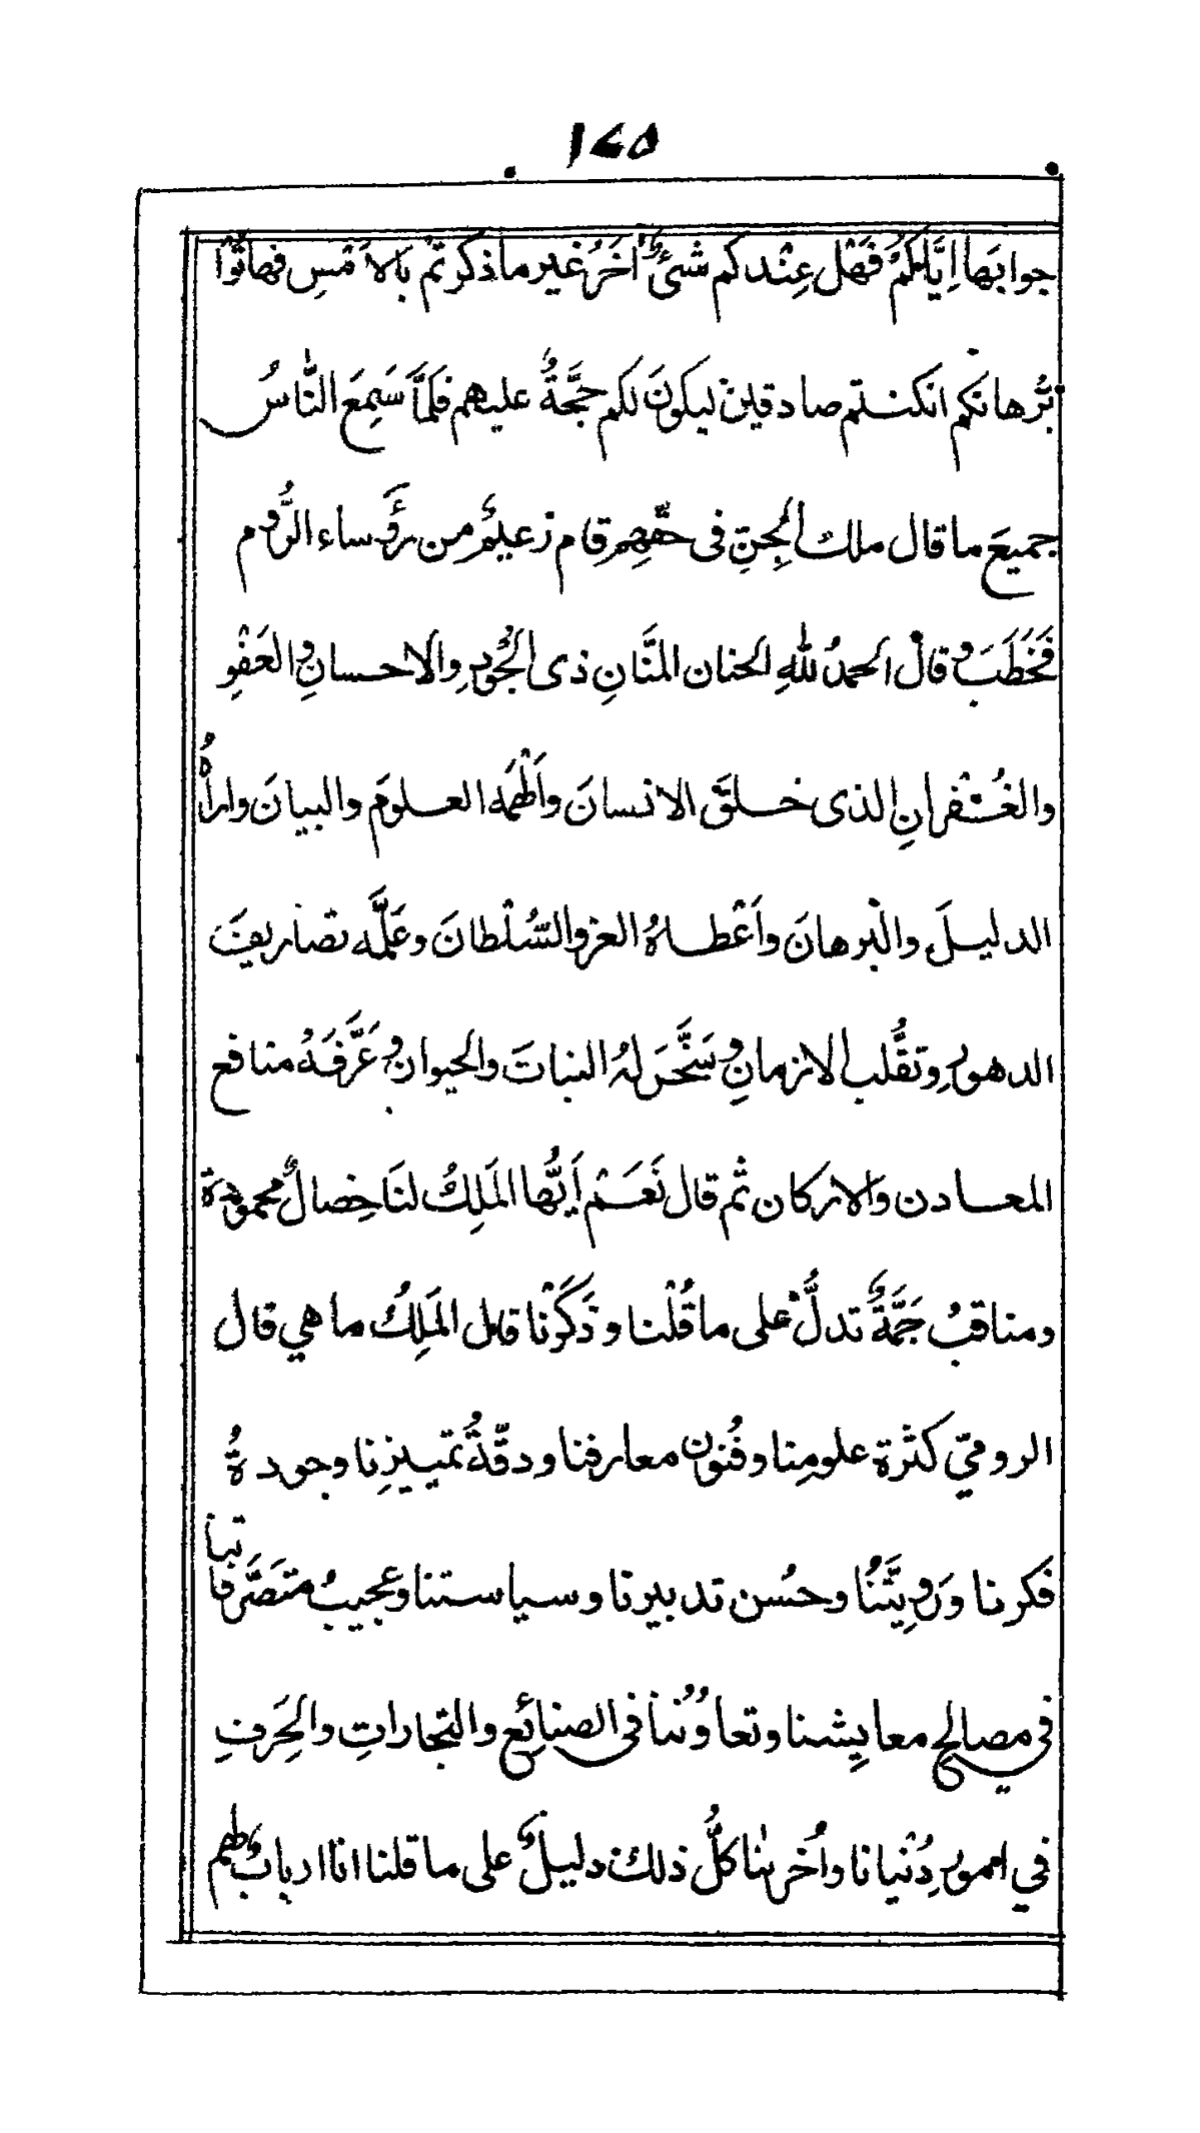 ١٤٥
جوابَها اِيَّاكُمْ فَهَل عِنْدكم شئٌ اٰخَرُ غير ما ذكرتُمْ بَالاَمْسِ فهاتُوْا
بُرْهانكم انكنتم صادقين ليكونَ لكم حجَّةٌ عليهم فلَمَّا سَمِعَ النَّاسُ
جميعَ ما قال ملك الجِنِّ فى حقِّهِم قام زعيمٌ من رؤَساء الرُّوم
فَخَطَبَ وقالْ الحمدُ للهِ الحنان المنَّانِ ذى الجُوْدِ والاحسانِ والعَفْوِ
والغُفْرانِ الذى خلقَ الانسانَ واَلْهَمَه العلومَ والبيانَ واراهُ
الدليلَ والبْرهانَ واَعْطاهُ العز والسُّلْطانَ وعَلَّمَه تصاريفَ
الدهورِ وتقُّلب الازمانِ وسَخَّرَ لهُ النباتَ والحيوان وعَرَّفَهُ منافع
المعادن والاركان ثم قال نَعَمْ أَيُّها المَلِكُ لنَا خِصالٌ محمودة
ومناقبُ جَمَّةٌ تدلُّ على ما قُلْنا وذَكَرْنا قال المَلِكُ ما هي قال
الروميّ كثْرة علومِنا وفُنون معارفنا ودقّةُ تمييزِنا وجودةُ
فكرنا ورَوِيَّتُنا وحسُن تدبيرنا وسياستنا وعجيبُ متصَرَّفاتنا
في مصالح معايِشنا وتعاوُننا فى الصنائع والتجاراتِ والحِرَفِ
في امورِ دُنْيانا واُخرٰىنا كلُّ ذلك دليلٌ على ما قلنا انا اربابٌ لهم